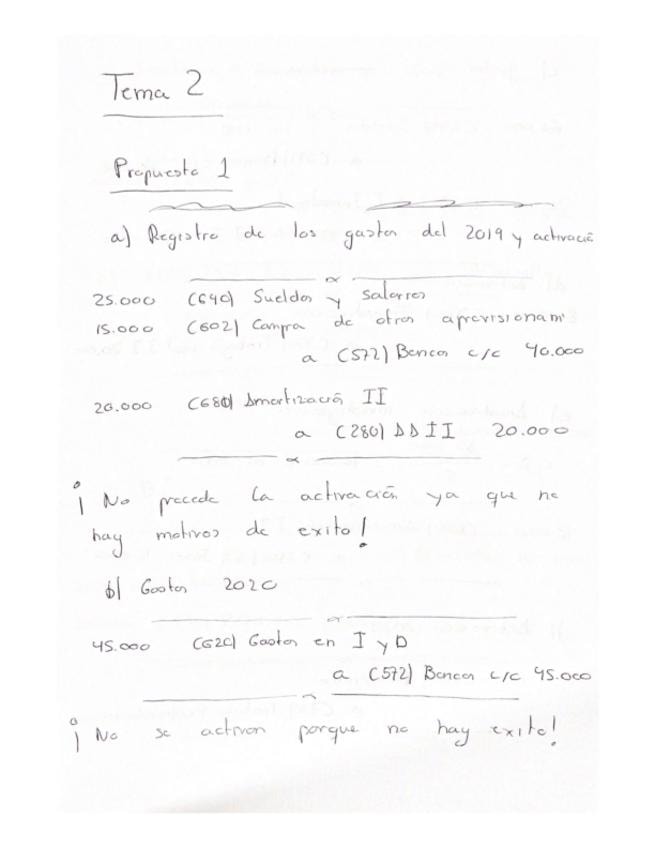 Tema 2
Propuesta 1
a) Registro de los gastos del 2019 y activació
25.000 (640) Sueldos y salarios
15.000 (602) Compra de otros aprovisionam
a (572) Bancos c/c 40.000
20.000 (680) Amortización II
a (280) AAII 20.000
¡No procede la activación ya que no
hay motivos de exito!
b) Gastos 2020
45.000 (620) Gastos en I y D
a (572) Bancos c/c 45.000
¡No se activan porque no hay exito!